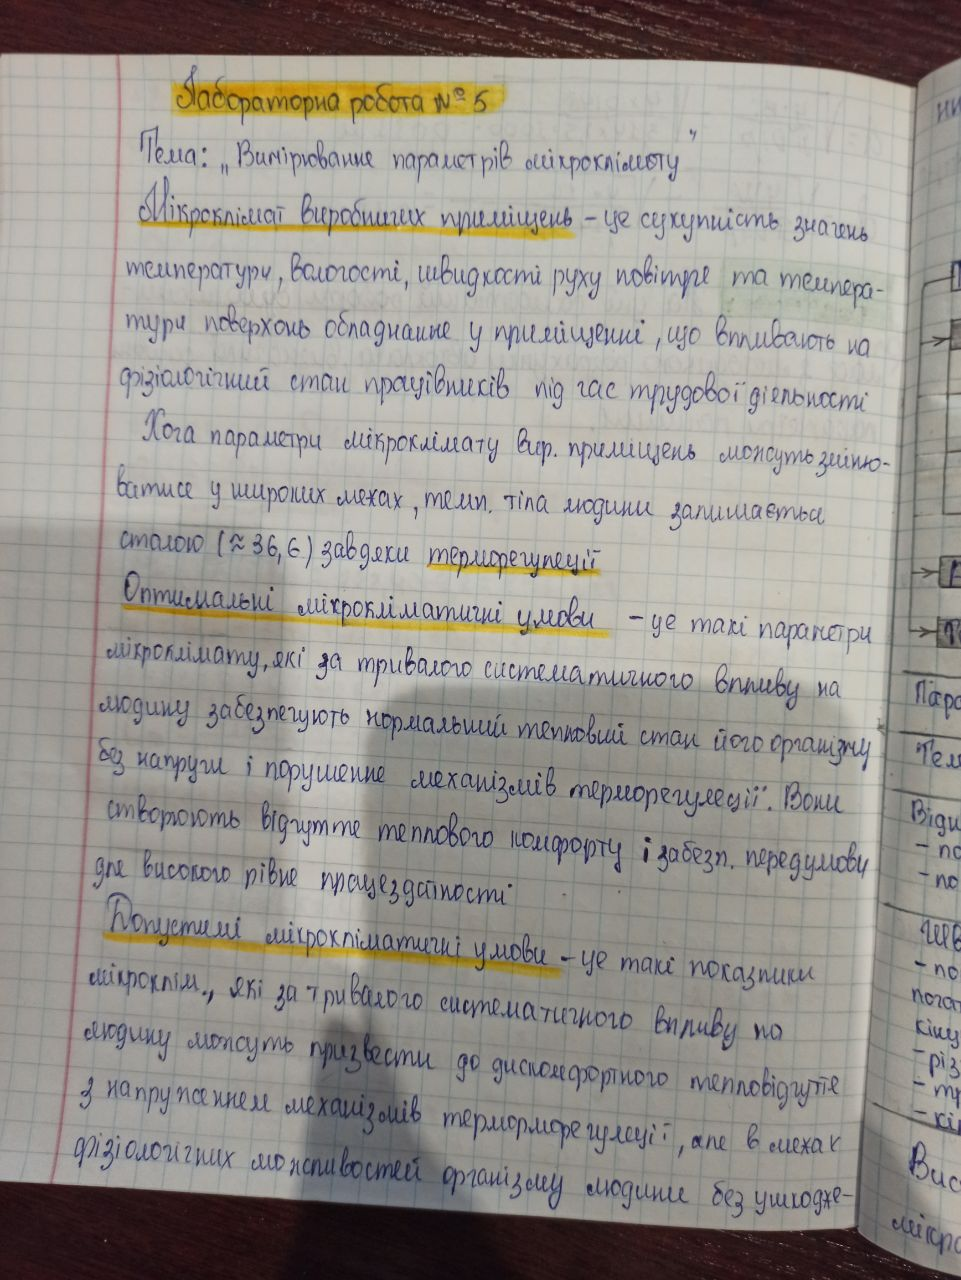 Лабораторна робота №5
Тема: „Вимірювання параметрів мікроклімату”
Мікроклімат виробничих приміщень – це сукупність значень
температури, вологості, швидкості руху повітря та темпера-
тури поверхонь обладнання у приміщенні, що впливають на
фізіологічний стан працівників під час трудової діяльності
Хоча параметри мікроклімату вир. приміщень можуть зміню-
ватися у широких межах, темп. тіла людини залишається
сталою (≈36,6) завдяки терморегуляції
Оптимальні мікрокліматичні умови – це такі параметри
мікроклімату, які за тривалого систематичного впливу на
людину забезпечують нормальний тепловий стан його організму
без напруги і порушення механізмів терморегуляції. Вони
створюють відчуття теплового комфорту і забезп. передумови
для високого рівня працездатності
Допустимі мікрокліматичні умови – це такі показники
мікроклім., які за тривалого систематичного впливу на
людину можуть призвести до дискомфортного тепловідчуття
з напруженнем механізмів терморморегуляції, але в межах
фізіологічних можливостей організму людини без ушкодже-
Тем
Відч
- по
- по
- по
- різ
Вис
мікро